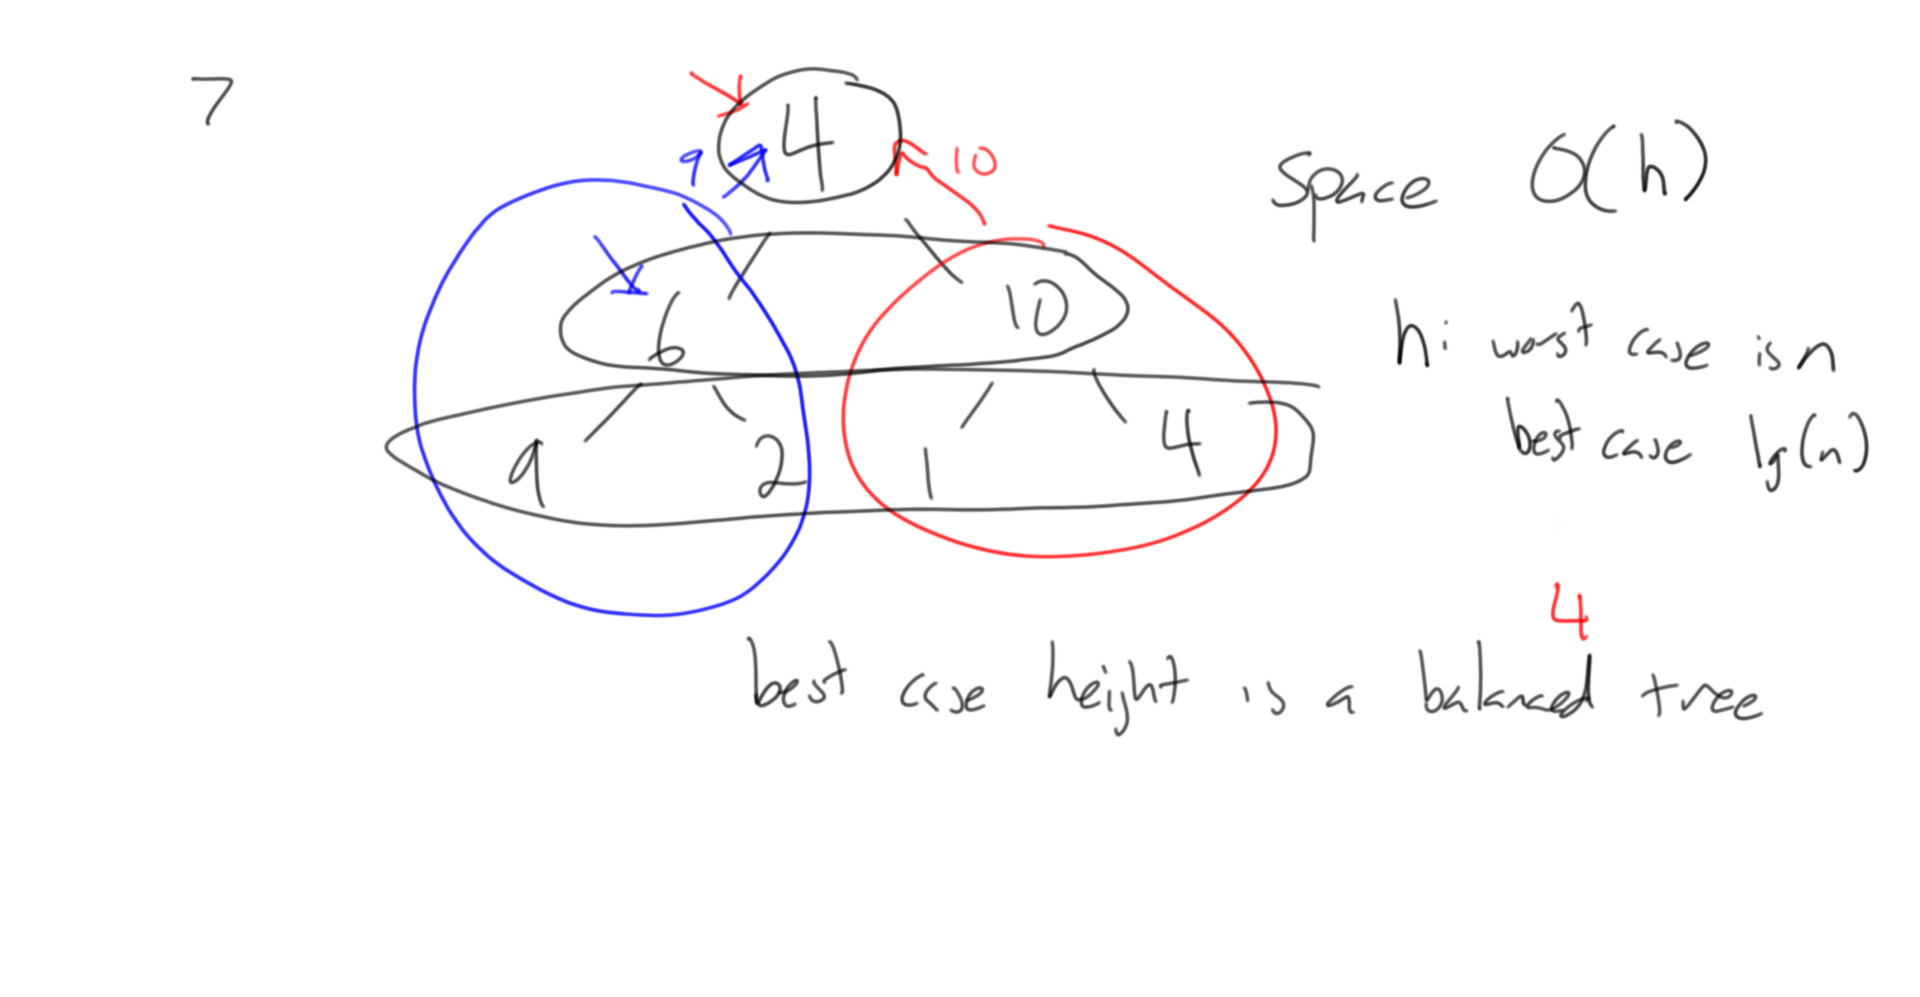 7
4
9
10
6
10
9
2
1
4
Space O(h)
h: worst case is n
best case lg(n)
4
best case height is a balanced tree